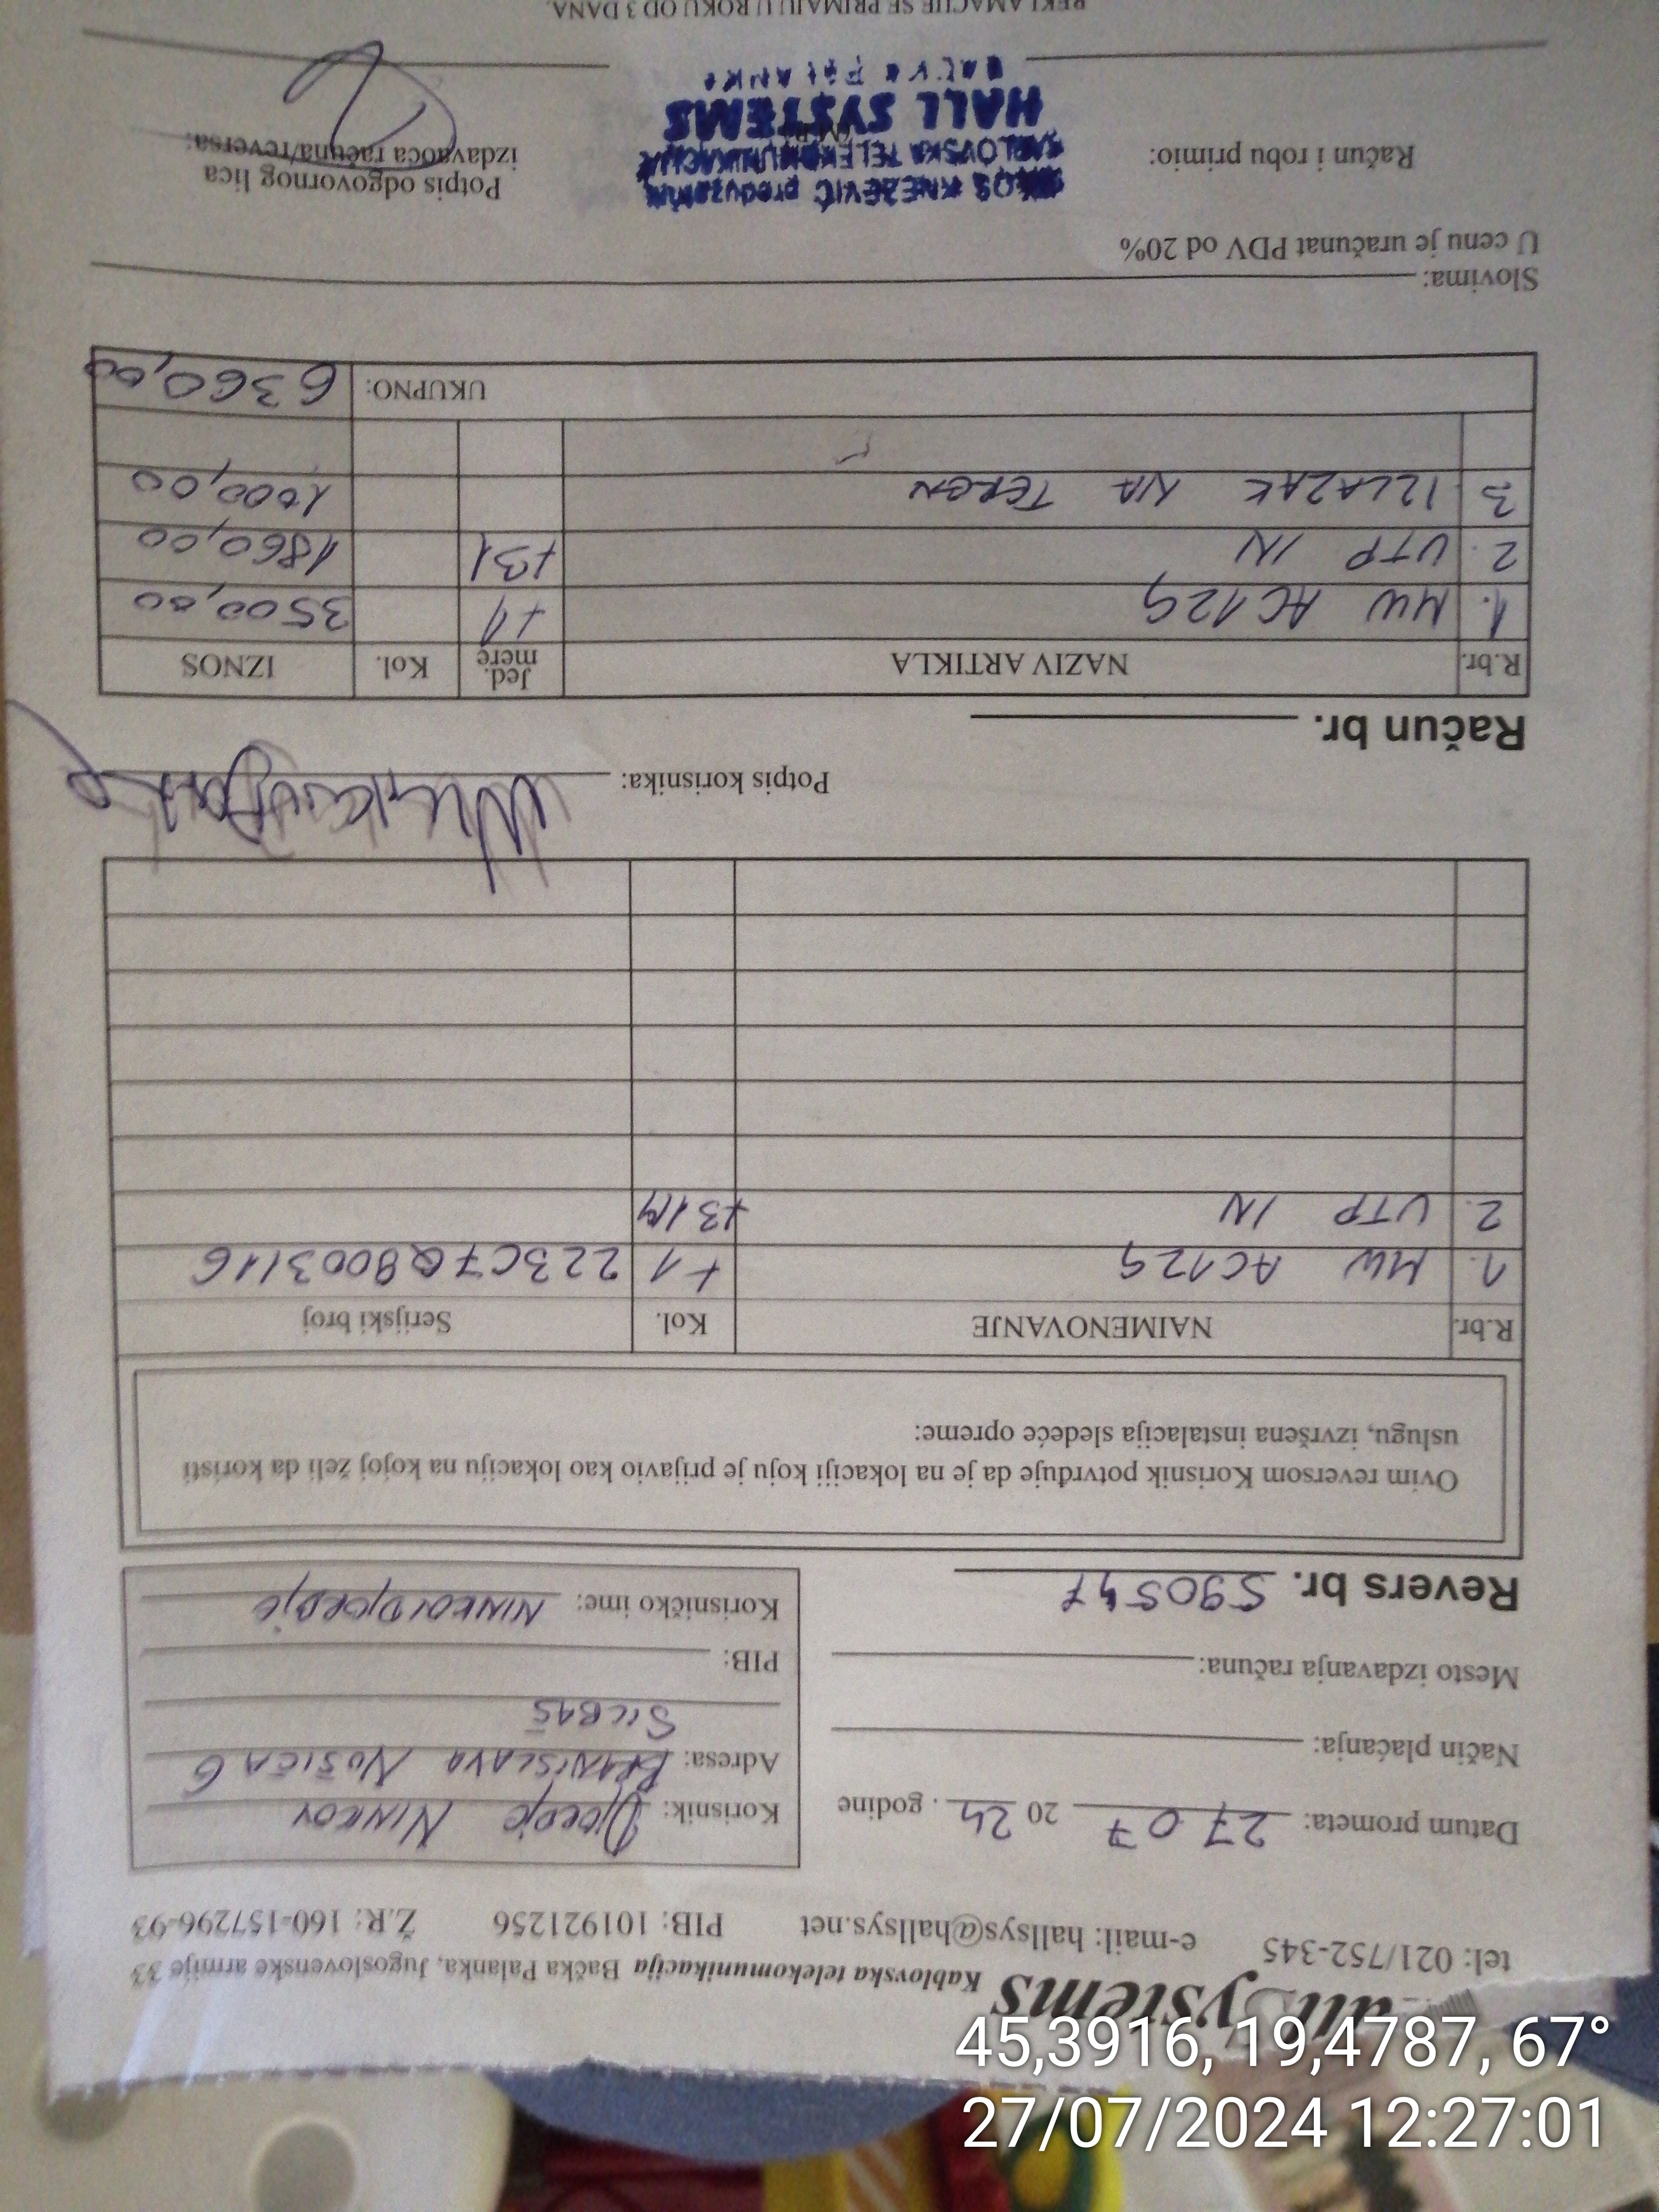 all Systems Kablovska telekomunikacija Bačka Palanka, Jugoslovenske armije 33
tel: 021/752-345 e-mail: hallsys@hallsys.net PIB: 101921256 Ž.R: 160-157296-93
Datum prometa: 27 07 20 24 . godine
Način plaćanja:
Mesto izdavanja računa:
Revers br. 590547
Korisnik: Djordje Ninkov
Adresa: BRANISLAVA NUŠIĆA 6
SILBAŠ
PIB:
Korisničko ime: NINKOVDJORDJE
Ovim reversom Korisnik potvrđuje da je na lokaciji koju je prijavio kao lokaciju na kojoj želi da koristi
uslugu, izvršena instalacija sledeće opreme:
R.br. NAIMENOVANJE Kol. Serijski broj
1. MW AC12G +1 223C7Q8003116
2. UTP IN +31M
Potpis korisnika:
Račun br.
R.br. NAZIV ARTIKLA Jed. mere Kol. IZNOS
1. MW AC12G +1 3500,00
2. UTP IN +31 1860,00
3 IZLAZAK NA TEREN 1000,00
UKUPNO: 6360,00
Slovima:
U cenu je uračunat PDV od 20%
Račun i robu primio:
KNEŽEVIĆ preduzetnik
KABLOVSKA TELEKOMUNIKACIJA
HALL SYSTEMS
BAČKA PALANKA
Potpis odgovornog lica
izdavaoca računa/reversa:
REKLAMACIJE SE PRIMAJU U ROKU OD 3 DANA.
45,3916, 19,4787, 67°
27/07/2024 12:27:01